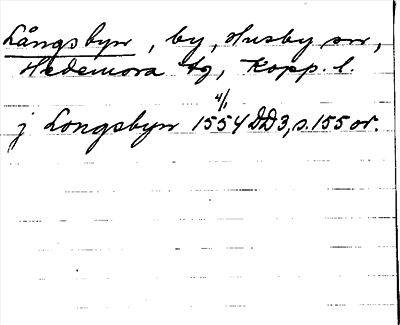 Långsbyn, by, Husby sn,
Hedemora tg, Kopp. l.
4/1
j Longsbyn 1554 DD3, s. 155 or.